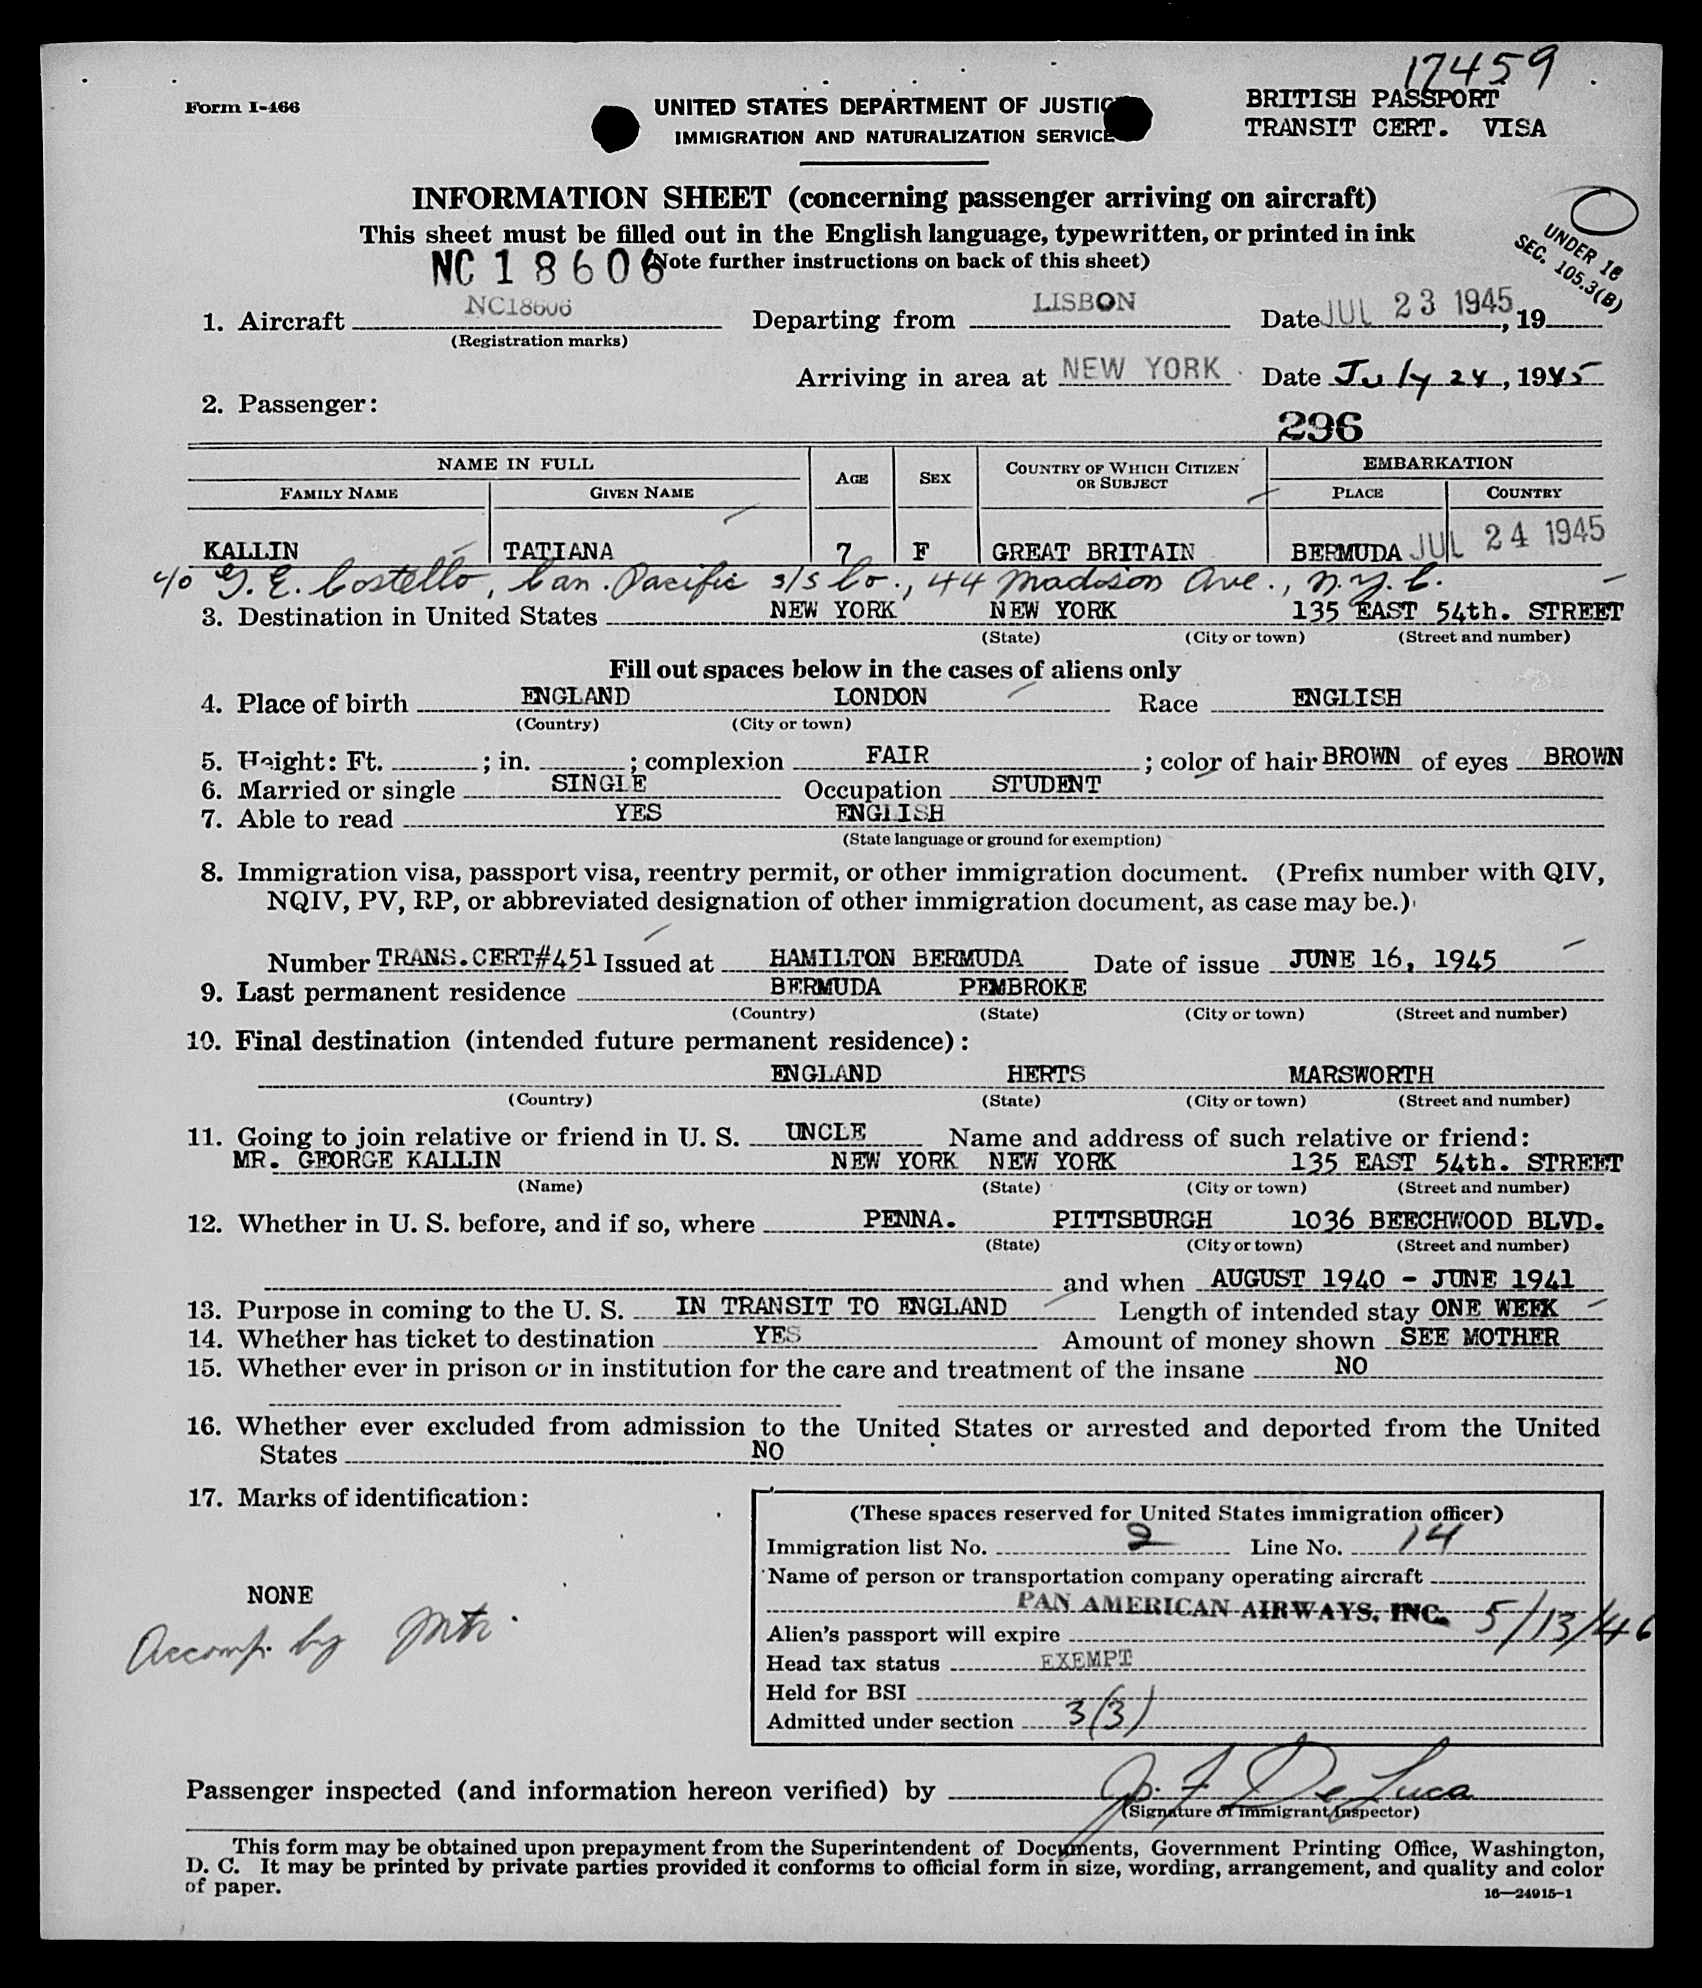 17459
Form I-466
UNITED STATES DEPARTMENT OF JUSTICE
BRITISH PASSPORT
IMMIGRATION AND NATURALIZATION SERVICE
TRANSIT CERT. VISA
INFORMATION SHEET (concerning passenger arriving on aircraft)
This sheet must be filled out in the English language, typewritten, or printed in ink
UNDER 16
SEC. 105.3(B)
NC 18606
(Note further instructions on back of this sheet)
1. Aircraft NC18606 Departing from LISBON Date JUL 23 1945, 19
(Registration marks)
Arriving in area at NEW YORK Date July 24, 1945
2. Passenger:
296
NAME IN FULL
FAMILY NAME GIVEN NAME AGE SEX COUNTRY OF WHICH CITIZEN OR SUBJECT EMBARKATION
PLACE COUNTRY
KALLIN TATIANA 7 F GREAT BRITAIN BERMUDA JUL 24 1945
c/o G. E. Costello, Can. Pacific s/s Co., 44 Madison Ave., N.Y.C.
3. Destination in United States NEW YORK NEW YORK 135 EAST 54th. STREET
(State) (City or town) (Street and number)
Fill out spaces below in the cases of aliens only
4. Place of birth ENGLAND LONDON Race ENGLISH
(Country) (City or town)
5. Height: Ft. ; in. ; complexion FAIR ; color of hair BROWN of eyes BROWN
6. Married or single SINGLE Occupation STUDENT
7. Able to read YES ENGLISH
(State language or ground for exemption)
8. Immigration visa, passport visa, reentry permit, or other immigration document. (Prefix number with QIV,
NQIV, PV, RP, or abbreviated designation of other immigration document, as case may be.)
Number TRANS.CERT#451 Issued at HAMILTON BERMUDA Date of issue JUNE 16, 1945
9. Last permanent residence BERMUDA PEMBROKE
(Country) (State) (City or town) (Street and number)
10. Final destination (intended future permanent residence):
ENGLAND HERTS MARSWORTH
(Country) (State) (City or town) (Street and number)
11. Going to join relative or friend in U. S. UNCLE Name and address of such relative or friend:
MR. GEORGE KALLIN NEW YORK NEW YORK 135 EAST 54th. STREET
(Name) (State) (City or town) (Street and number)
12. Whether in U. S. before, and if so, where PENNA. PITTSBURGH 1036 BEECHWOOD BLVD.
(State) (City or town) (Street and number)
and when AUGUST 1940 - JUNE 1941
13. Purpose in coming to the U. S. IN TRANSIT TO ENGLAND Length of intended stay ONE WEEK
14. Whether has ticket to destination YES Amount of money shown SEE MOTHER
15. Whether ever in prison or in institution for the care and treatment of the insane NO
16. Whether ever excluded from admission to the United States or arrested and deported from the United
States NO
17. Marks of identification:
NONE
Accomp. by Mtr.
(These spaces reserved for United States immigration officer)
Immigration list No. 2 Line No. 14
Name of person or transportation company operating aircraft
PAN AMERICAN AIRWAYS, INC.
Alien's passport will expire 5/13/46
Head tax status EXEMPT
Held for BSI
Admitted under section 3(3)
Passenger inspected (and information hereon verified) by J. F. De Luca
(Signature of Immigrant Inspector)
This form may be obtained upon prepayment from the Superintendent of Documents, Government Printing Office, Washington,
D. C. It may be printed by private parties provided it conforms to official form in size, wording, arrangement, and quality and color
of paper.
16—24915-1